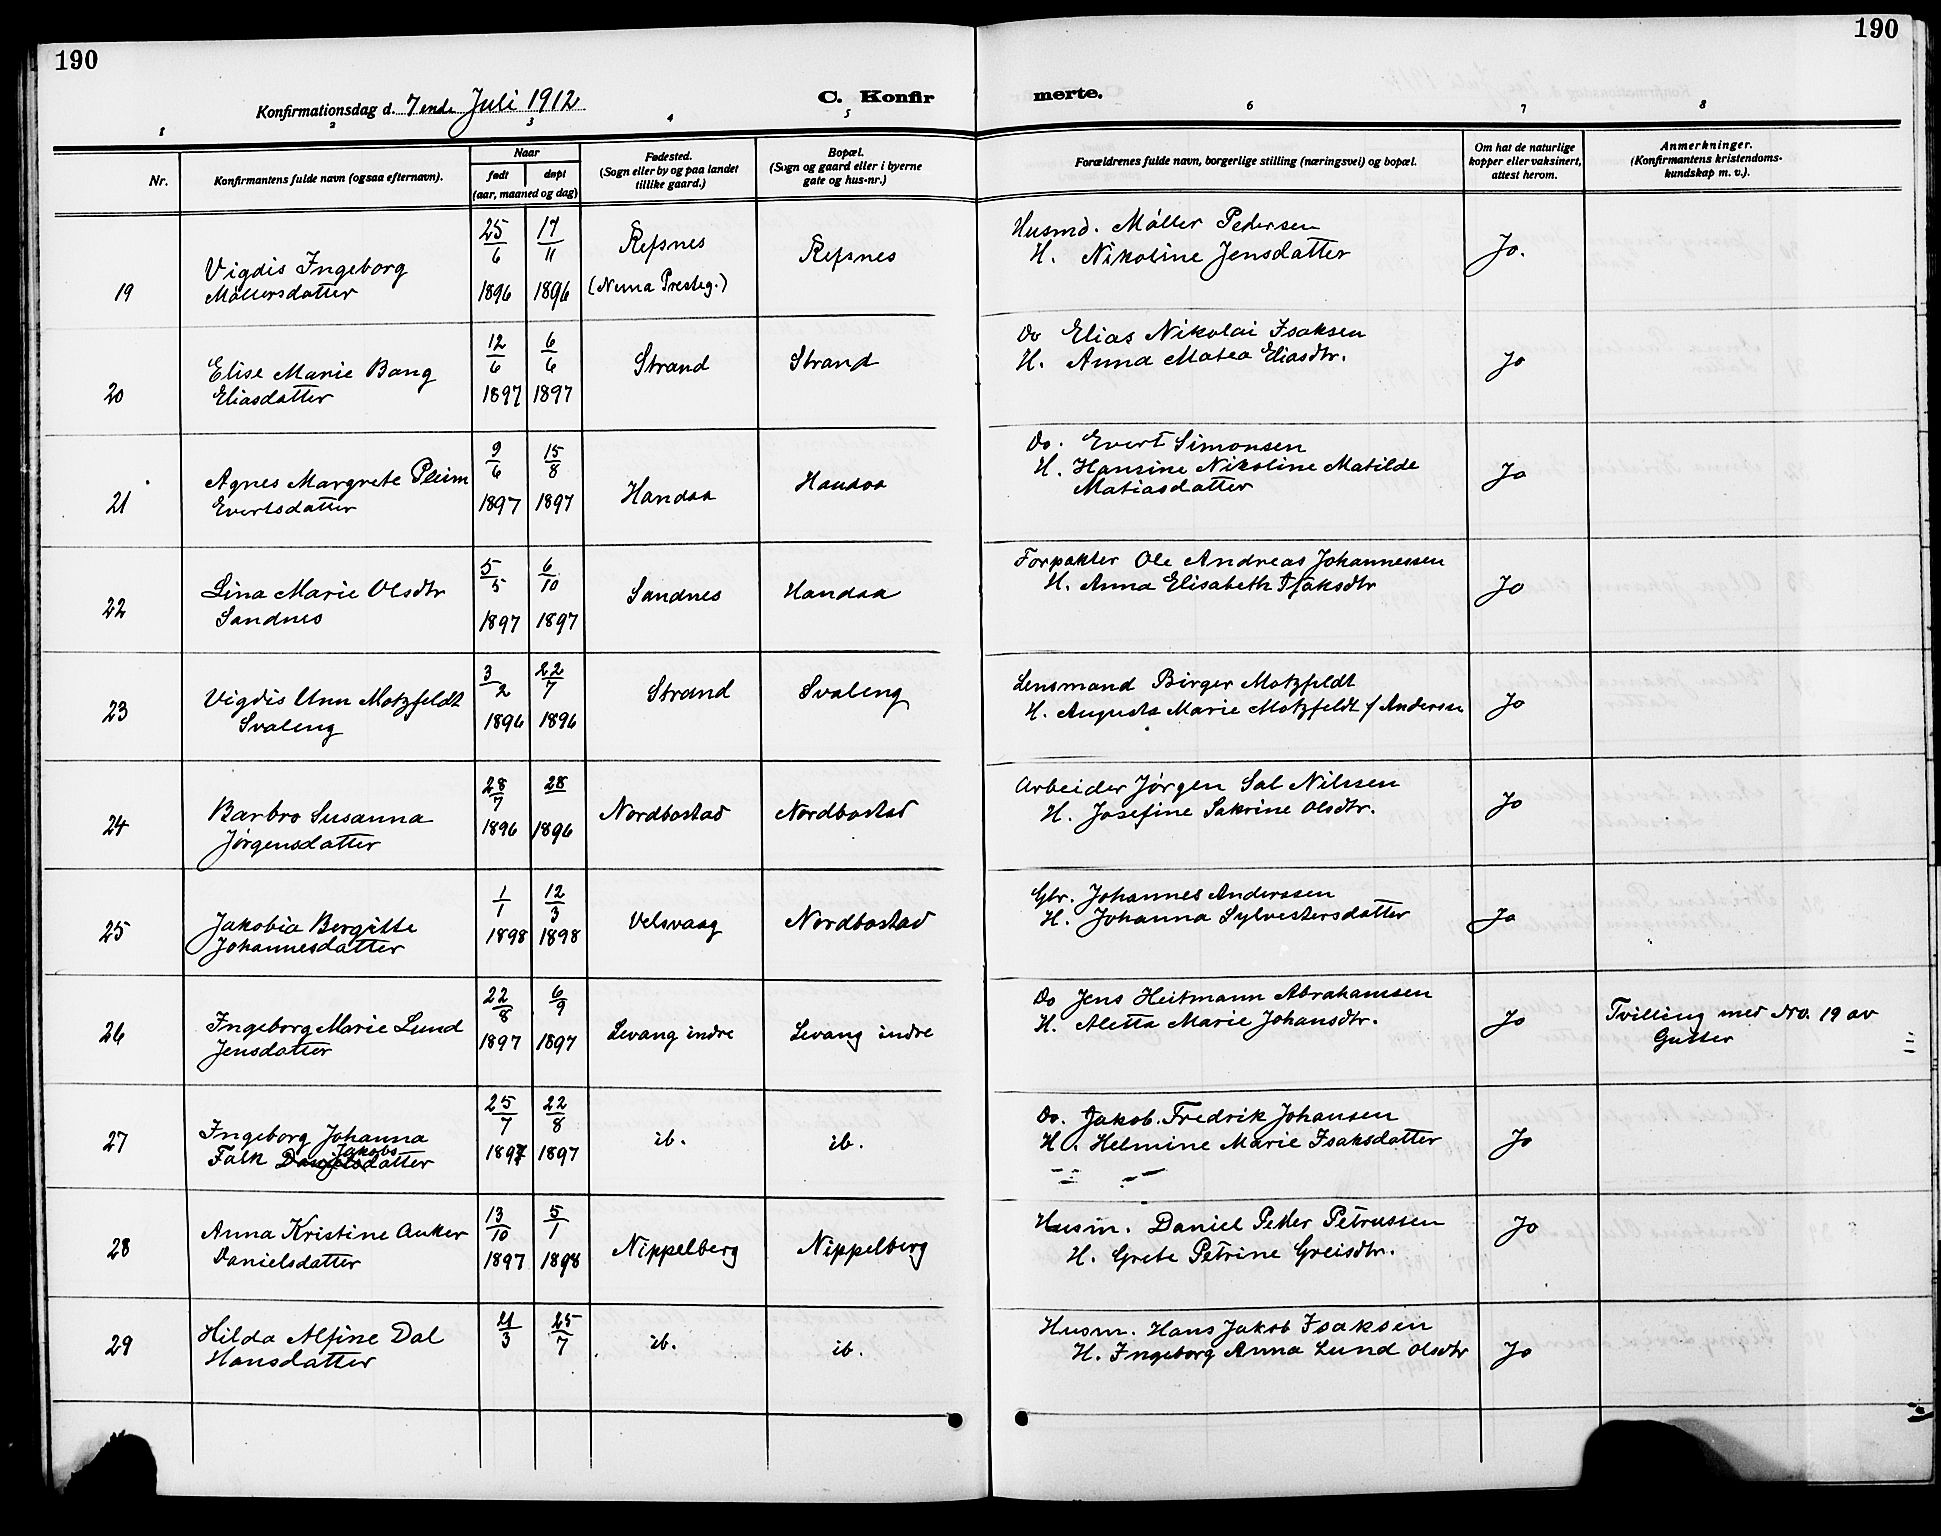 190
190
Konfirmationsdag d. 7ende Juli 1912
C. Konfir
merte.
1 2 3 4 5 6 7 8
Nr.
Konfirmantens fulde navn (ogsaa efternavn).
Naar
født
døpt
(aar, maaned og dag)
Fødested.
(Sogn eller by og paa landet
tillike gaard.)
Bopæl.
(Sogn og gaard eller i byerne
gate og hus-nr.)
Forældrenes fulde navn, borgerlige stilling (næringsvei) og bopæl.
Om hat de naturlige
kopper eller vaksinert,
attest herom.
Anmerkninger.
(Konfirmantens kristendoms-
kundskap m. v.).
19 Vigdis Ingeborg
Möllersdatter
25/6 1896
17/11 1896
Refsnes
(Nemna Presteg.)
Refsnes
Husmd. Möller Pedersen
H. Nikoline Jensdatter
Jo.
20 Elise Marie Bang
Eliasdatter
12/6 1897
6/6 1897
Strand
Strand
Do Elias Nikolai Isaksen
H. Anna Matea Eliasdtr.
Jo
21 Agnes Margrete Pleim
Evertsdatter
9/6 1897
15/8 1897
Handaa
Handaa
Do. Evert Simonsen
H. Hansine Nikoline Matilde
Matiasdatter
Jo
22 Lina Marie Olsdtr
Sandnes
5/5 1897
6/10 1897
Sandnes
Handaa
Forpakter Ole Andreas Johannessen
H. Anna Elisabeth Isaksdtr
Jo
23 Vigdis Unn Motzfeldt
Svaleng
3/2 1896
22/7 1896
Strand
Svaleng
Lensmand Birger Motzfeldt
H. Augusta Marie Motzfeldt f Andersen
Jo
24 Barbro Susanna
Jørgensdatter
28/7 1896
28 1896
Nordbostad
Nordbostad
Arbeider Jørgen Sal Nilssen
H. Josefine Sakrine Olsdtr.
Jo
25 Jakobia Bergitte
Johannesdatter
1/1 1898
12/3 1898
Velsvaag
Nordbostad
Gbr. Johannes Anderssen
H. Johanna Sylvestersdatter
Jo
26 Ingeborg Marie Lund
Jensdatter
22/8 1897
6/9 1897
Levang indre
Levang indre
Do Jens Heitmann Abrahamsen
H. Aletta Marie Johansdtr.
Jo
Tvilling med No. 19 av
Gutter
27 Ingeborg Johanna
Falk Jakobsdatter
25/7 1897
22/8 1897
ib.
ib.
Do. Jakob Fredrik Johansen
H. Helmine Marie Isaksdatter
Jo
28 Anna Kristine Anker
Danielsdatter
13/10 1897
5/1 1898
Nippelberg
Nippelberg
Husm. Daniel Peder Petrussen
H. Grete Petrine Greisdtr.
Jo
29 Hilda Alfine Dal
Hansdatter
21/3
25/7
ib.
ib.
Husm. Hans Jakob Isaksen
H. Ingeborg Anna Lund Olsdtr
Jo